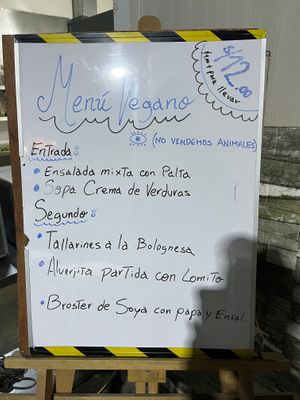 S/12.00
Menú Vegano
(NO VENDEMOS ANIMALES)
Entrada:
• Ensalada mixta con Palta
• Sopa Crema de Verduras
Segundo:
• Tallarines a la Bolognesa
• Alverjita partida con Lomito
• Broster de Soya con papa y Ensal...